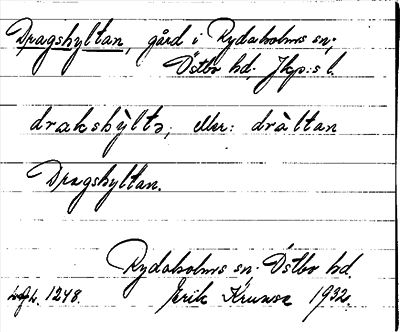 Dragshyltan, gård i Rydaholms sn;
Östbo hd, Jkp:s l.
drakshỳltə; eller: dràltan
Dragshyltan.
Rydaholms sn. Östbo hd.
1248. Erik 1932.